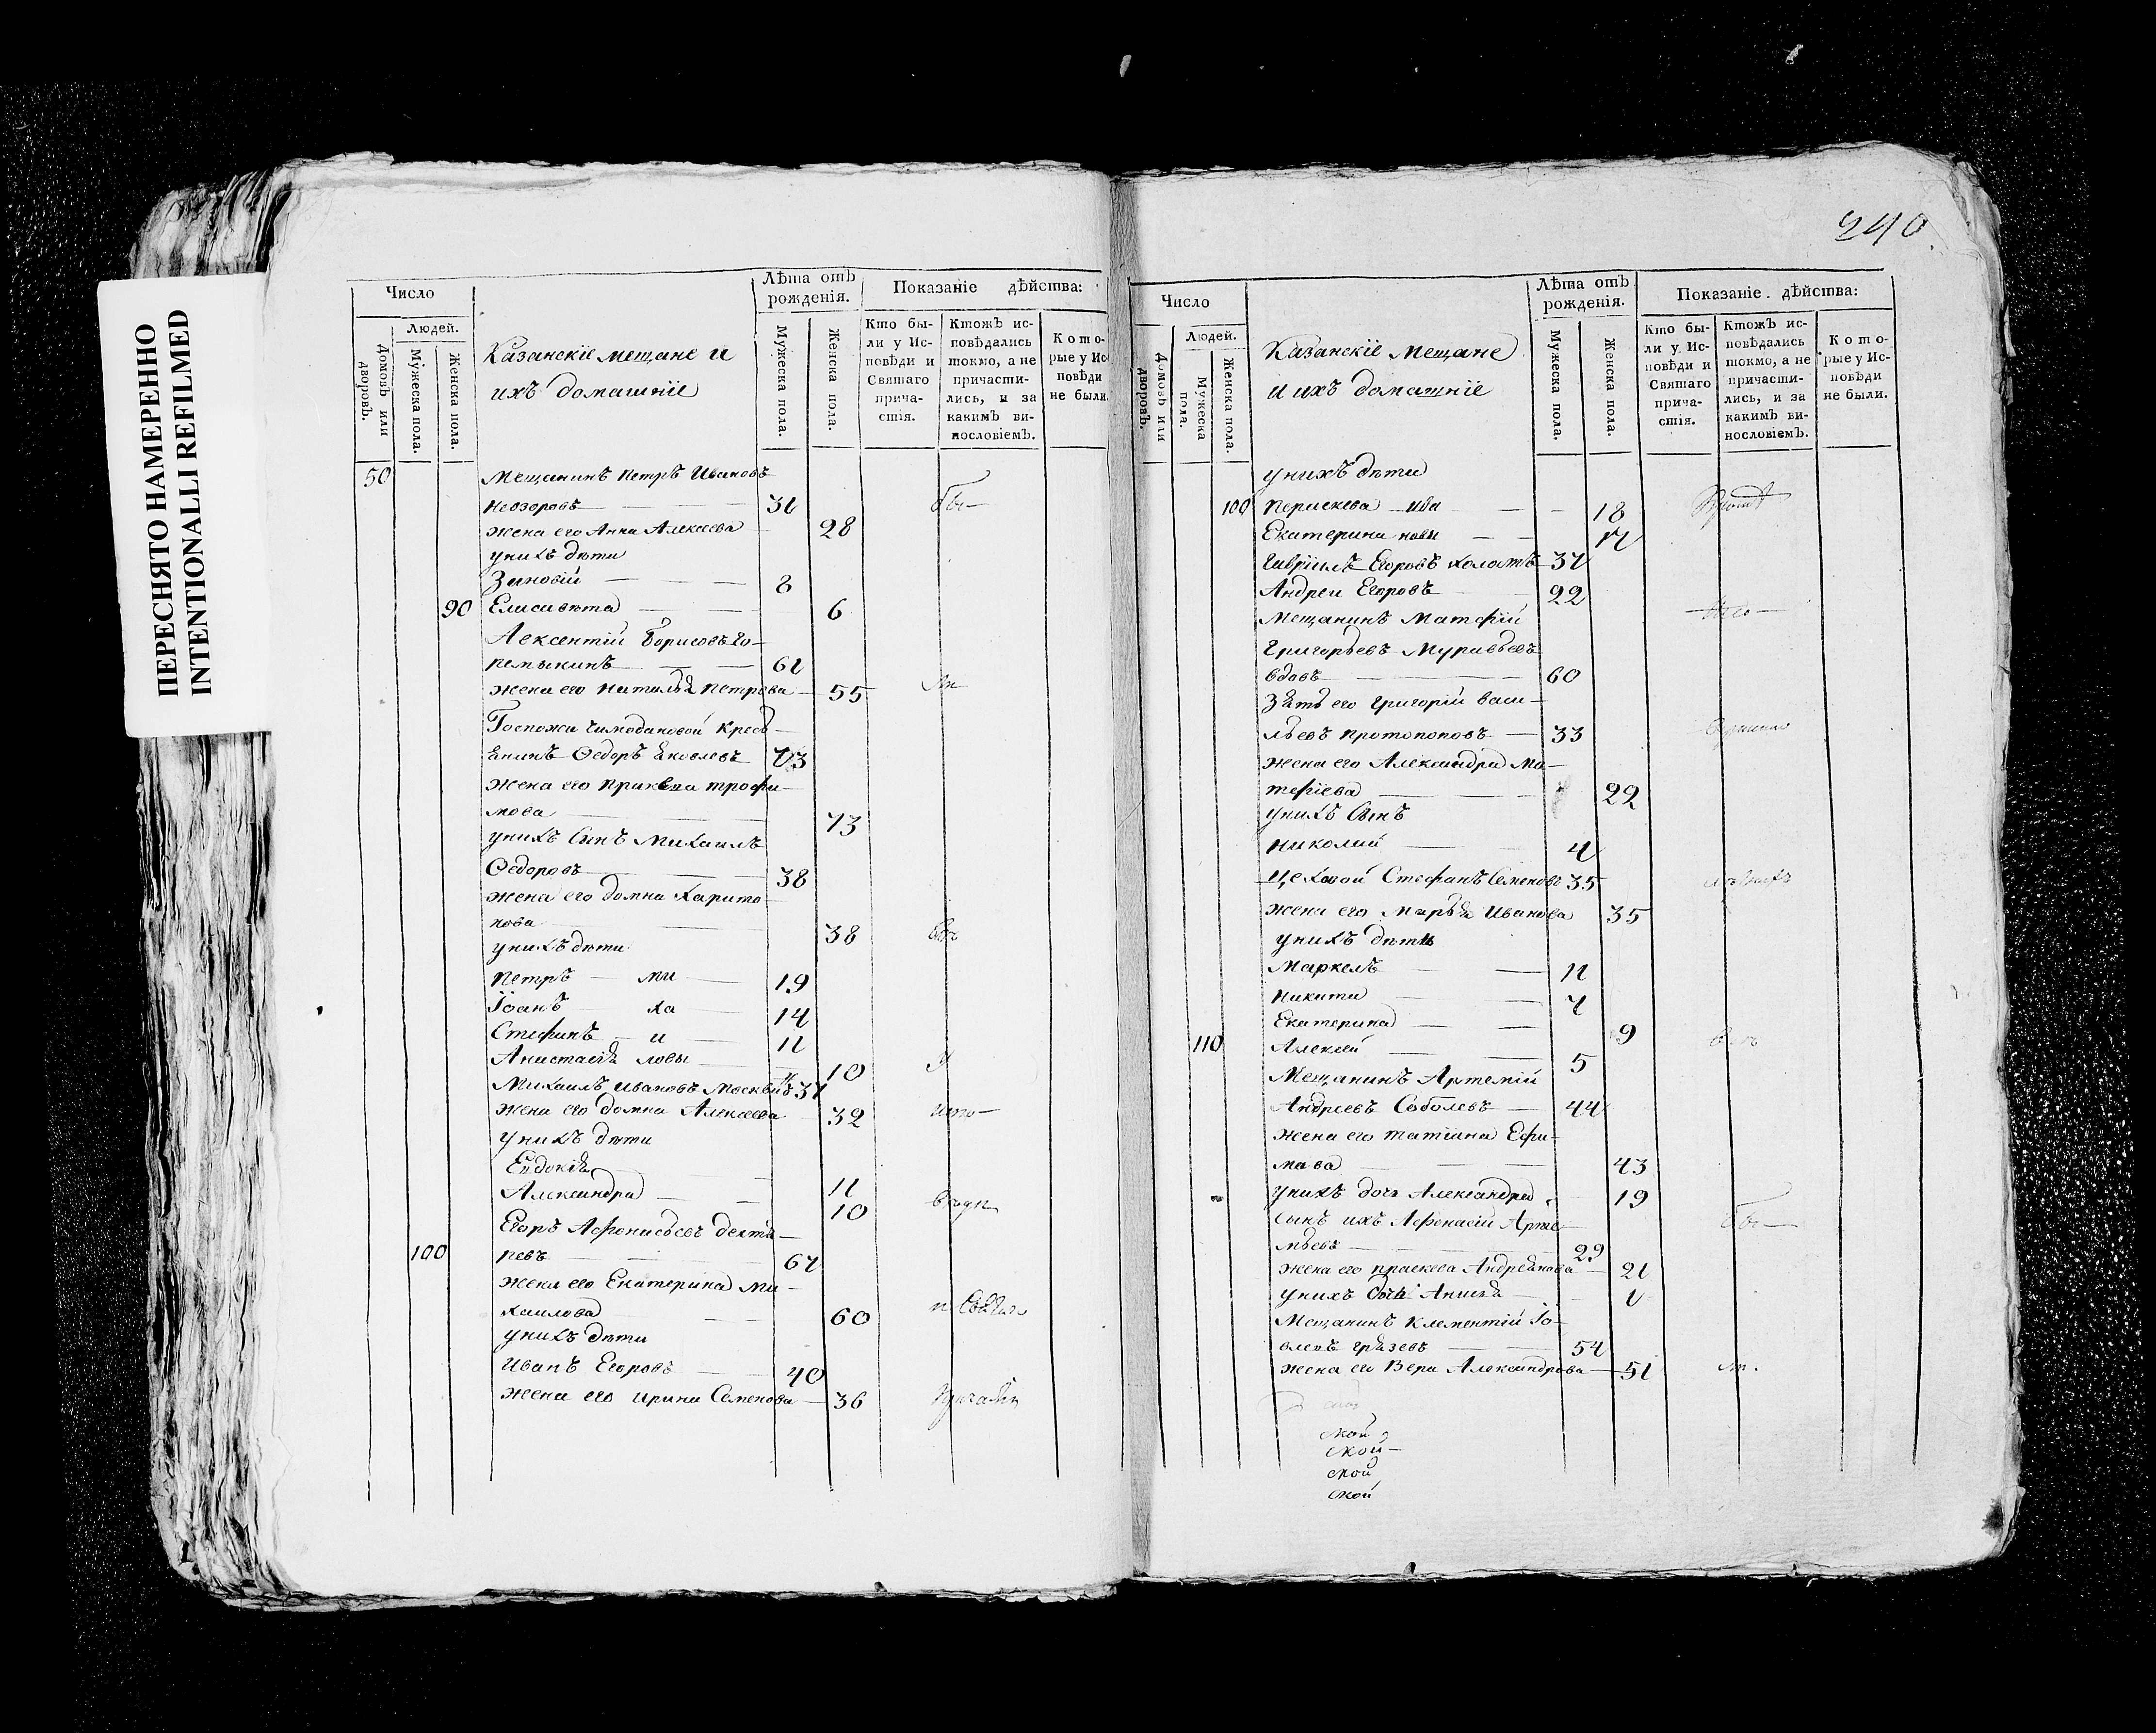 240
ПЕРЕСНЯТО НАМЕРЕННО
INTENTIONALLI REFILMED
Число
Людей.
Домовъ или дворовъ.
Мужеска пола.
Женска пола.
Казанскіе мещане и
ихъ домашніе
Лѣта отъ
рожденія.
Мужеска пола.
Женска пола.
Показаніе дѣйства:
Кто бы-
ли у Ис-
повѣди и
Святаго
прича-
стія.
Ктожъ ис-
повѣдались
токмо, а не
причасти-
лись, и за
какимъ ви-
нословіемъ.
Кото-
рые у Ис-
повѣди
не были.
50 Мещанинъ Петръ Ивановъ
Неозоровъ 31
жена его Анна Алексеева 28
унихъ дѣти
Зиновій 8
90 Елисавета 6
Авксентій Борисовъ Го-
ремыкинъ 61
жена его Наталья Петрова 55
Госпожи Чимодановой Кресть-
янинъ Ѳедоръ Яковлевъ 73
жена его трофи-
мова 73
унихъ Сынъ Михаилъ
Ѳедоровъ 38
жена его Домна Харито
нова 38
унихъ дѣти
Петръ ми 19
Іоанъ ха 14
Стефанъ и 11
Анастасія ловы 10
Михаилъ Ивановъ 37
жена его Домна Алексеева 32
унихъ дѣти
Евдокія 11
Александра 10
Егоръ Афонасьевъ Дехтя-
100 ревъ 67
жена его Екатерина Ми-
хаилова 60
унихъ дѣти
Иванъ Егоровъ 40
жена его Ирина Семенова 36
Число
Людей.
Домовъ или дворовъ.
Мужеска пола.
Женска пола.
Казанскіе Мещане
и ихъ домашніе
Лѣта отъ
рожденія.
Мужеска пола.
Женска пола.
Показаніе дѣйства:
Кто бы-
ли у Ис-
повѣди и
Святаго
прича-
стія.
Ктожъ ис-
повѣдались
токмо, а не
причасти-
лись, и за
какимъ ви-
нословіемъ.
Кото-
рые у Ис-
повѣди
не были.
унихъ дѣти
100 Параскева ива 18
Екатерина новы
Гавріилъ Егоровъ холостъ 37
Андреи Егоровъ 22
Мещанинъ Матфій
Григорьевъ Муравьевъ
вдовъ 60
Зять его Григорій Васи-
льевъ Протопоповъ 33
жена его Александра Ма-
тфіева 22
унихъ Сынъ
Николай 4
Цеховой Стефанъ Семеновъ 35
жена его Марья Иванова 35
унихъ дѣти
Маркелъ 11
Никита 7
Екатерина 9
110 Алексей 5
Мещанинъ Артемій
Андреевъ Соболевъ 44
жена его Татіана Ефи-
мова 43
унихъ дочь Александра 19
Сынъ ихъ Афонасій Арте
мьевъ 29
жена его Праскева Андреянова 21
унихъ дочь Анисья 1
Мещанинъ Клементій Іо-
влевъ Грязевъ 54
жена его Вера Александрова 51
мой
мой
мой
мой